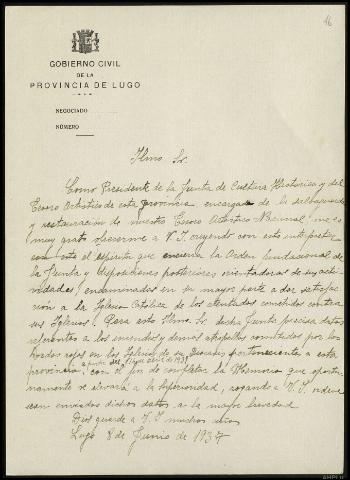 16
GOBIERNO CIVIL
DE LA
PROVINCIA DE LUGO
NEGOCIADO
NÚMERO
Ilmo Sr.
Como Presidente de la Junta de Cultura Historica y del
Tesoro Artístico de esta provincia, encargada de la salvaguarda
y restauración de nuestro Tesoro Artístico Nacional me es
muy grato dirigirme a V.I. creyendo con esto interpretar
con esto el espiritu que encierra la Orden fundacional de
la Junta y disposiciones posteriores orientadoras de sus acti-
vidades, encaminadas en su mayor parte a dar satisfac-
ción a la Iglesia Católica de los atentados cometidos contra
sus Iglesias. Para esto Ilmo. Sr. dicha Junta precisa datos
referentes a los incendios y demas atropellos cometidos por las
hordas rojas en las Iglesias de su Diocesis pertenecientes a esta
a partir del abril de 1931
provincia, con el fin de completar la Memoria que oportu-
namente se elevará a la Superioridad, rogando a V.I. ordene
sean enviados dichos datos a la mayor brevedad
Dios guarde a V.I muchos años
Lugo 8 de Junio de 1937
AHPLU